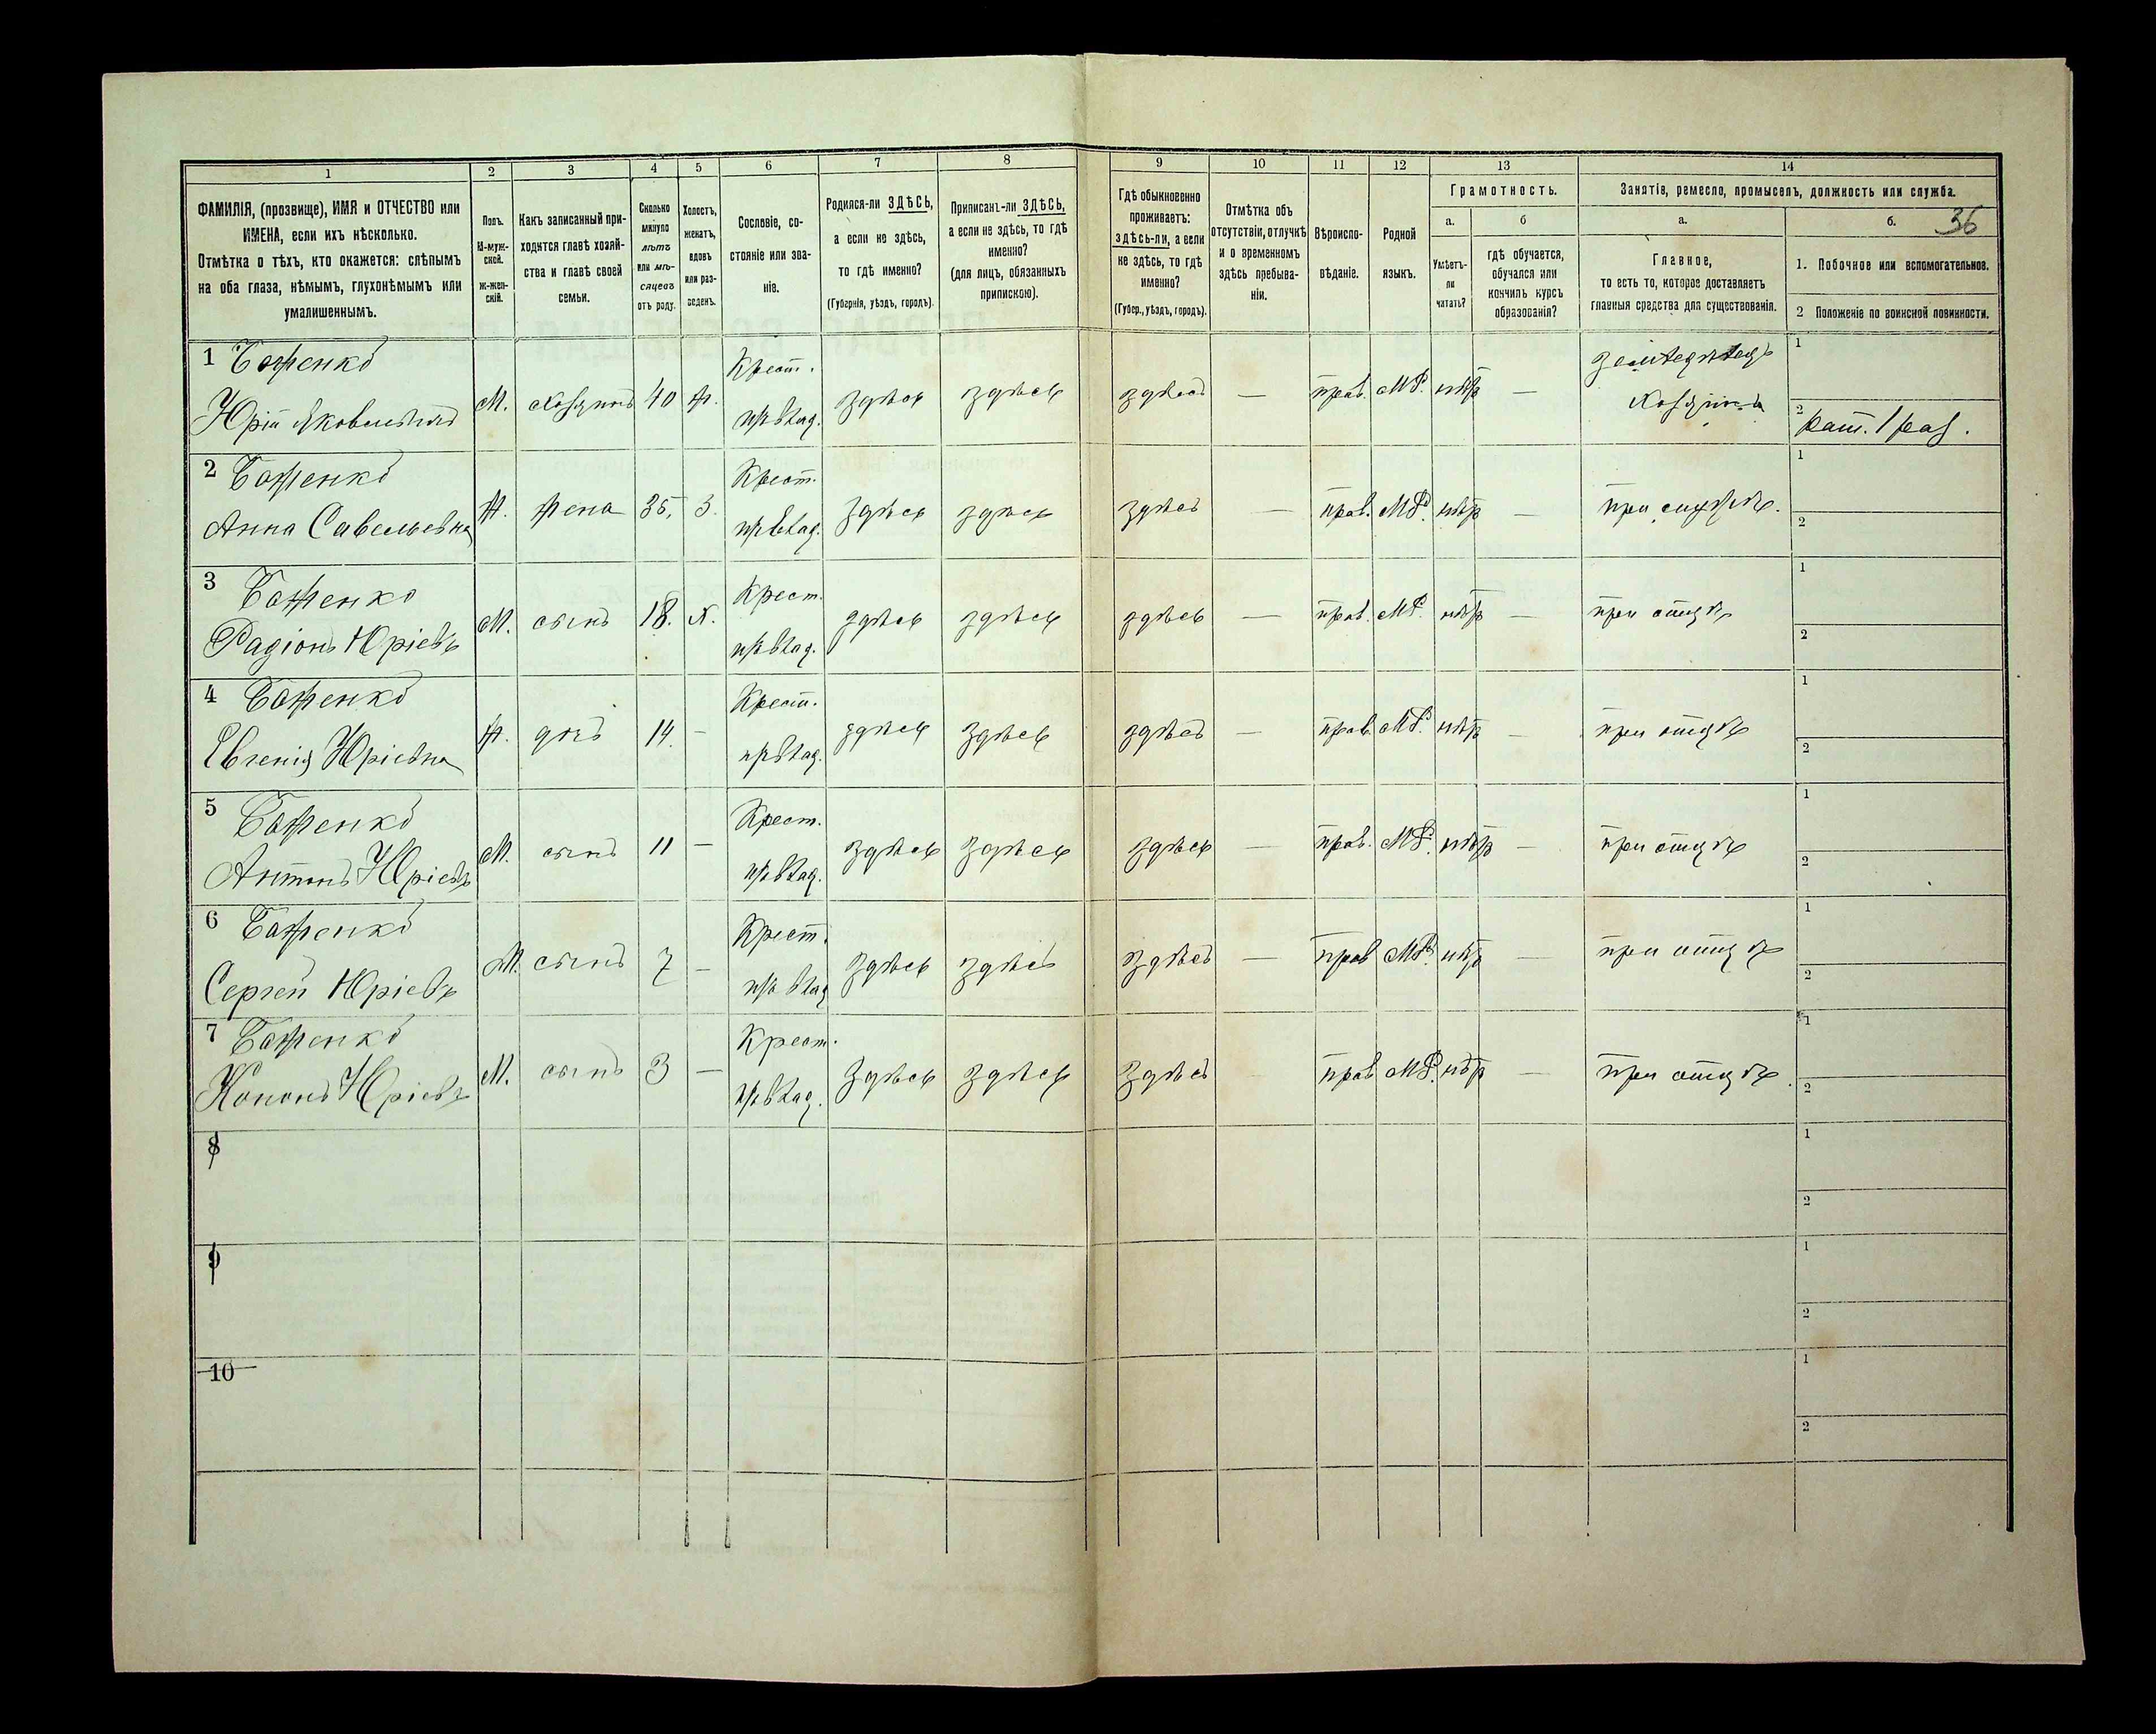 1 2 3 4 5 6 7 8 9 10 11 12 13 14
ФАМИЛІЯ, (прозвище), ИМЯ и ОТЧЕСТВО или
ИМЕНА, если ихъ нѣсколько.
Отмѣтка о тѣхъ, кто окажется: слѣпымъ
на оба глаза, нѣмымъ, глухонѣмымъ или
умалишеннымъ.
Полъ.
М-муж-
ской.
Ж-жен-
скій.
Какъ записанный при-
ходится главѣ хозяй-
ства и главѣ своей
семьи.
Сколько
минуло
лѣтъ
или мѣ-
сяцевъ
отъ роду.
Холостъ,
женатъ,
вдовъ
или раз-
веденъ.
Сословіе, со-
стояніе или зва-
ніе.
Родился-ли ЗДѢСЬ,
а если не здѣсь,
то гдѣ именно?
(Губернія, уѣздъ, городъ).
Приписанъ-ли ЗДѢСЬ,
а если не здѣсь, то гдѣ
именно?
(для лицъ, обязанныхъ
припискою).
Гдѣ обыкновенно
проживаетъ:
здѣсь-ли, а если
не здѣсь, то гдѣ
именно?
(Губер., уѣздъ, городъ).
Отмѣтка объ
отсутствіи, отлучкѣ
и о временномъ
здѣсь пребыва-
ніи.
Вѣроиспо-
вѣданіе.
Родной
языкъ.
Грамотность.
а. б
Умѣетъ-
ли
читать?
гдѣ обучается,
обучался или
кончилъ курсъ
образованія?
Занятіе, ремесло, промыселъ, должность или служба.
а. б. 36
Главное,
то есть то, которое доставляетъ
главныя средства для существованія.
1. Побочное или вспомогательное.
2 Положеніе по воинской повинности.
1 Баженко Крест. земледѣлецъ 1
Юрій Яковлевичъ М. хозяинъ 40 ж. пр. влад. здѣсь здѣсь здѣсь — прав. МР. нѣтъ — хозяинъ
2 рат. 1 раз.
2 Баженко Крест. 1
Анна Савельевна ж. жена 35. З. пр. влад. здѣсь здѣсь здѣсь — прав. МР. нѣтъ — при мужѣ. 2
3 Баженко Крест. 1
Радіонъ Юріевъ М. сынъ 18. х. пр. влад. здѣсь здѣсь здѣсь — прав. МР. нѣтъ — при отцѣ 2
4 Баженко Крест. 1
Евгенія Юріевна ж. дчь 14. — пр. влад. здѣсь здѣсь здѣсь — прав. МР. нѣтъ — при отцѣ 2
5 Баженко Крест. 1
Антонъ Юріевъ М. сынъ 11 — пр. влад. здѣсь здѣсь здѣсь — прав. МР. нѣтъ — при отцѣ 2
6 Баженко Крест. 1
Сергей Юріевъ М. сынъ 7 — пр. влад здѣсь здѣсь здѣсь — прав МР. нѣтъ — при отцѣ 2
7 Баженко Крест. 1
Кононъ Юріевъ М. сынъ 3 — пр. влад. здѣсь здѣсь здѣсь прав МР. нѣтъ — при отцѣ. 2
8 1
2
9 1
2
10 1
2